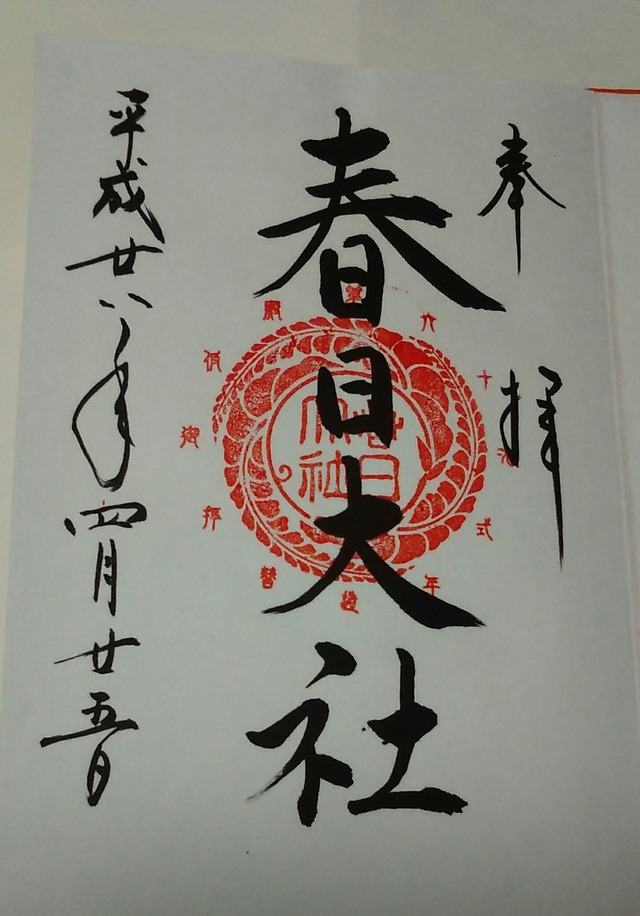 奉拝
春日大社
平成廿八年四月廿五日
春日
大社
第六十次式年造替